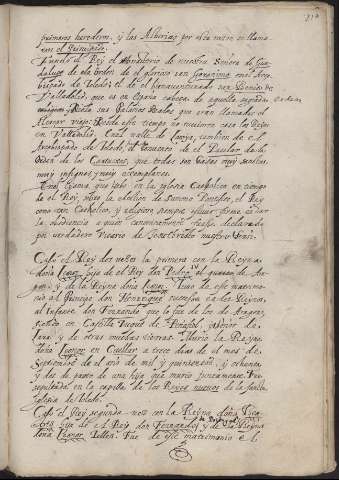 primeros herederos, y las Asturias por esta razon se llama
ron el Principado.
Fundó el Rey el Monasterio de nuestra Señora de Gua
dalupe de ela Orden de el glorioso san Geronimo en el Arço
bispado de Toledo, el de el bienaventurado san Benito de
Valladolid, que es en España cabeça de aquella sagrada
Religion. Hizo sus Palacios Reales, que eran llamados el
Alcaçar viejo. Desde este tiempo lo hicieron casa los Reyes
en Valladolid. En el valle de Loçoya, tambien de el
Arçobispado de Toledo, el Convento de el Paular de la
Orden de los Cartuxos, que todas son Casas muy
muy insignes y muy exemplares.
Una cisma que hubo en la iglesia Catholica en tiempo
de el Rey, sobre la eleccion de Summo Pontifice, el Rey
como tan Catholico, y religioso siempre estuvo firme en dar
la obediencia a quien canonicamente fuesse declarado
por verdadero Vicario de Jesu Christo nuestro Señor.
Casó el Rey dos veces la primera con la Reyna
doña Leonor hija de el Rey don Pedro IV de Ara
gon, y de la Reyna doña Leonor. Tubo de este matrimo
nio al Principe don Henrique sucesor en los Reynos,
al Infante don Fernando que lo fue de los de Aragon,
siendo en Castilla Duque de Peñafiel, señor de
Lara y de otras muchas tierras. Murio la Reyna
doña Leonor en Cuellar a trece dias de el mes de
Septiembre de el año de mil y quinientos, y ochenta
y dos de parto de una hija que murio juntamente. Fue
sepultada en la capilla de los Reyes nuevos de la santa
iglesia de Toledo.
Casó el Rey segunda vez con la Reyna doña Bea
de Portugal
triz hija de el Rey don Fernando y de la Reyna
doña Leonor Tellez. Fue de este matrimonio el